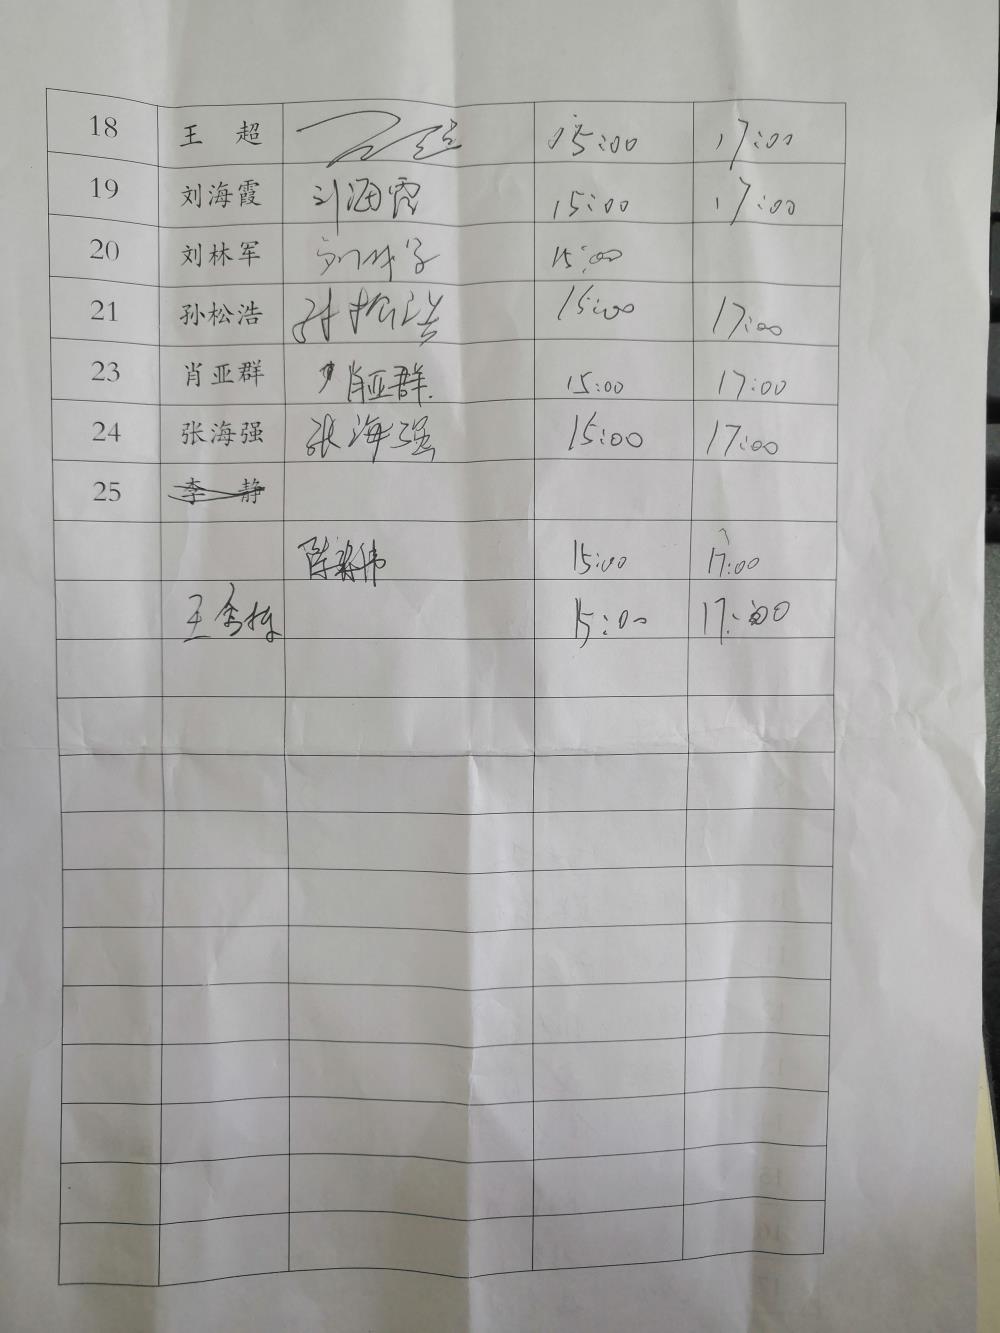 18 王 超 王超 15:00 17:00
19 刘海霞 刘海霞 15:00 17:00
20 刘林军 刘林军 15:00
21 孙松浩 孙松浩 15:00 17:00
23 肖亚群 肖亚群. 15:00 17:00
24 张海强 张海强 15:00 17:00
25 李 静
陈 伟 15:00 17:00
王 栋 15:00 17:00